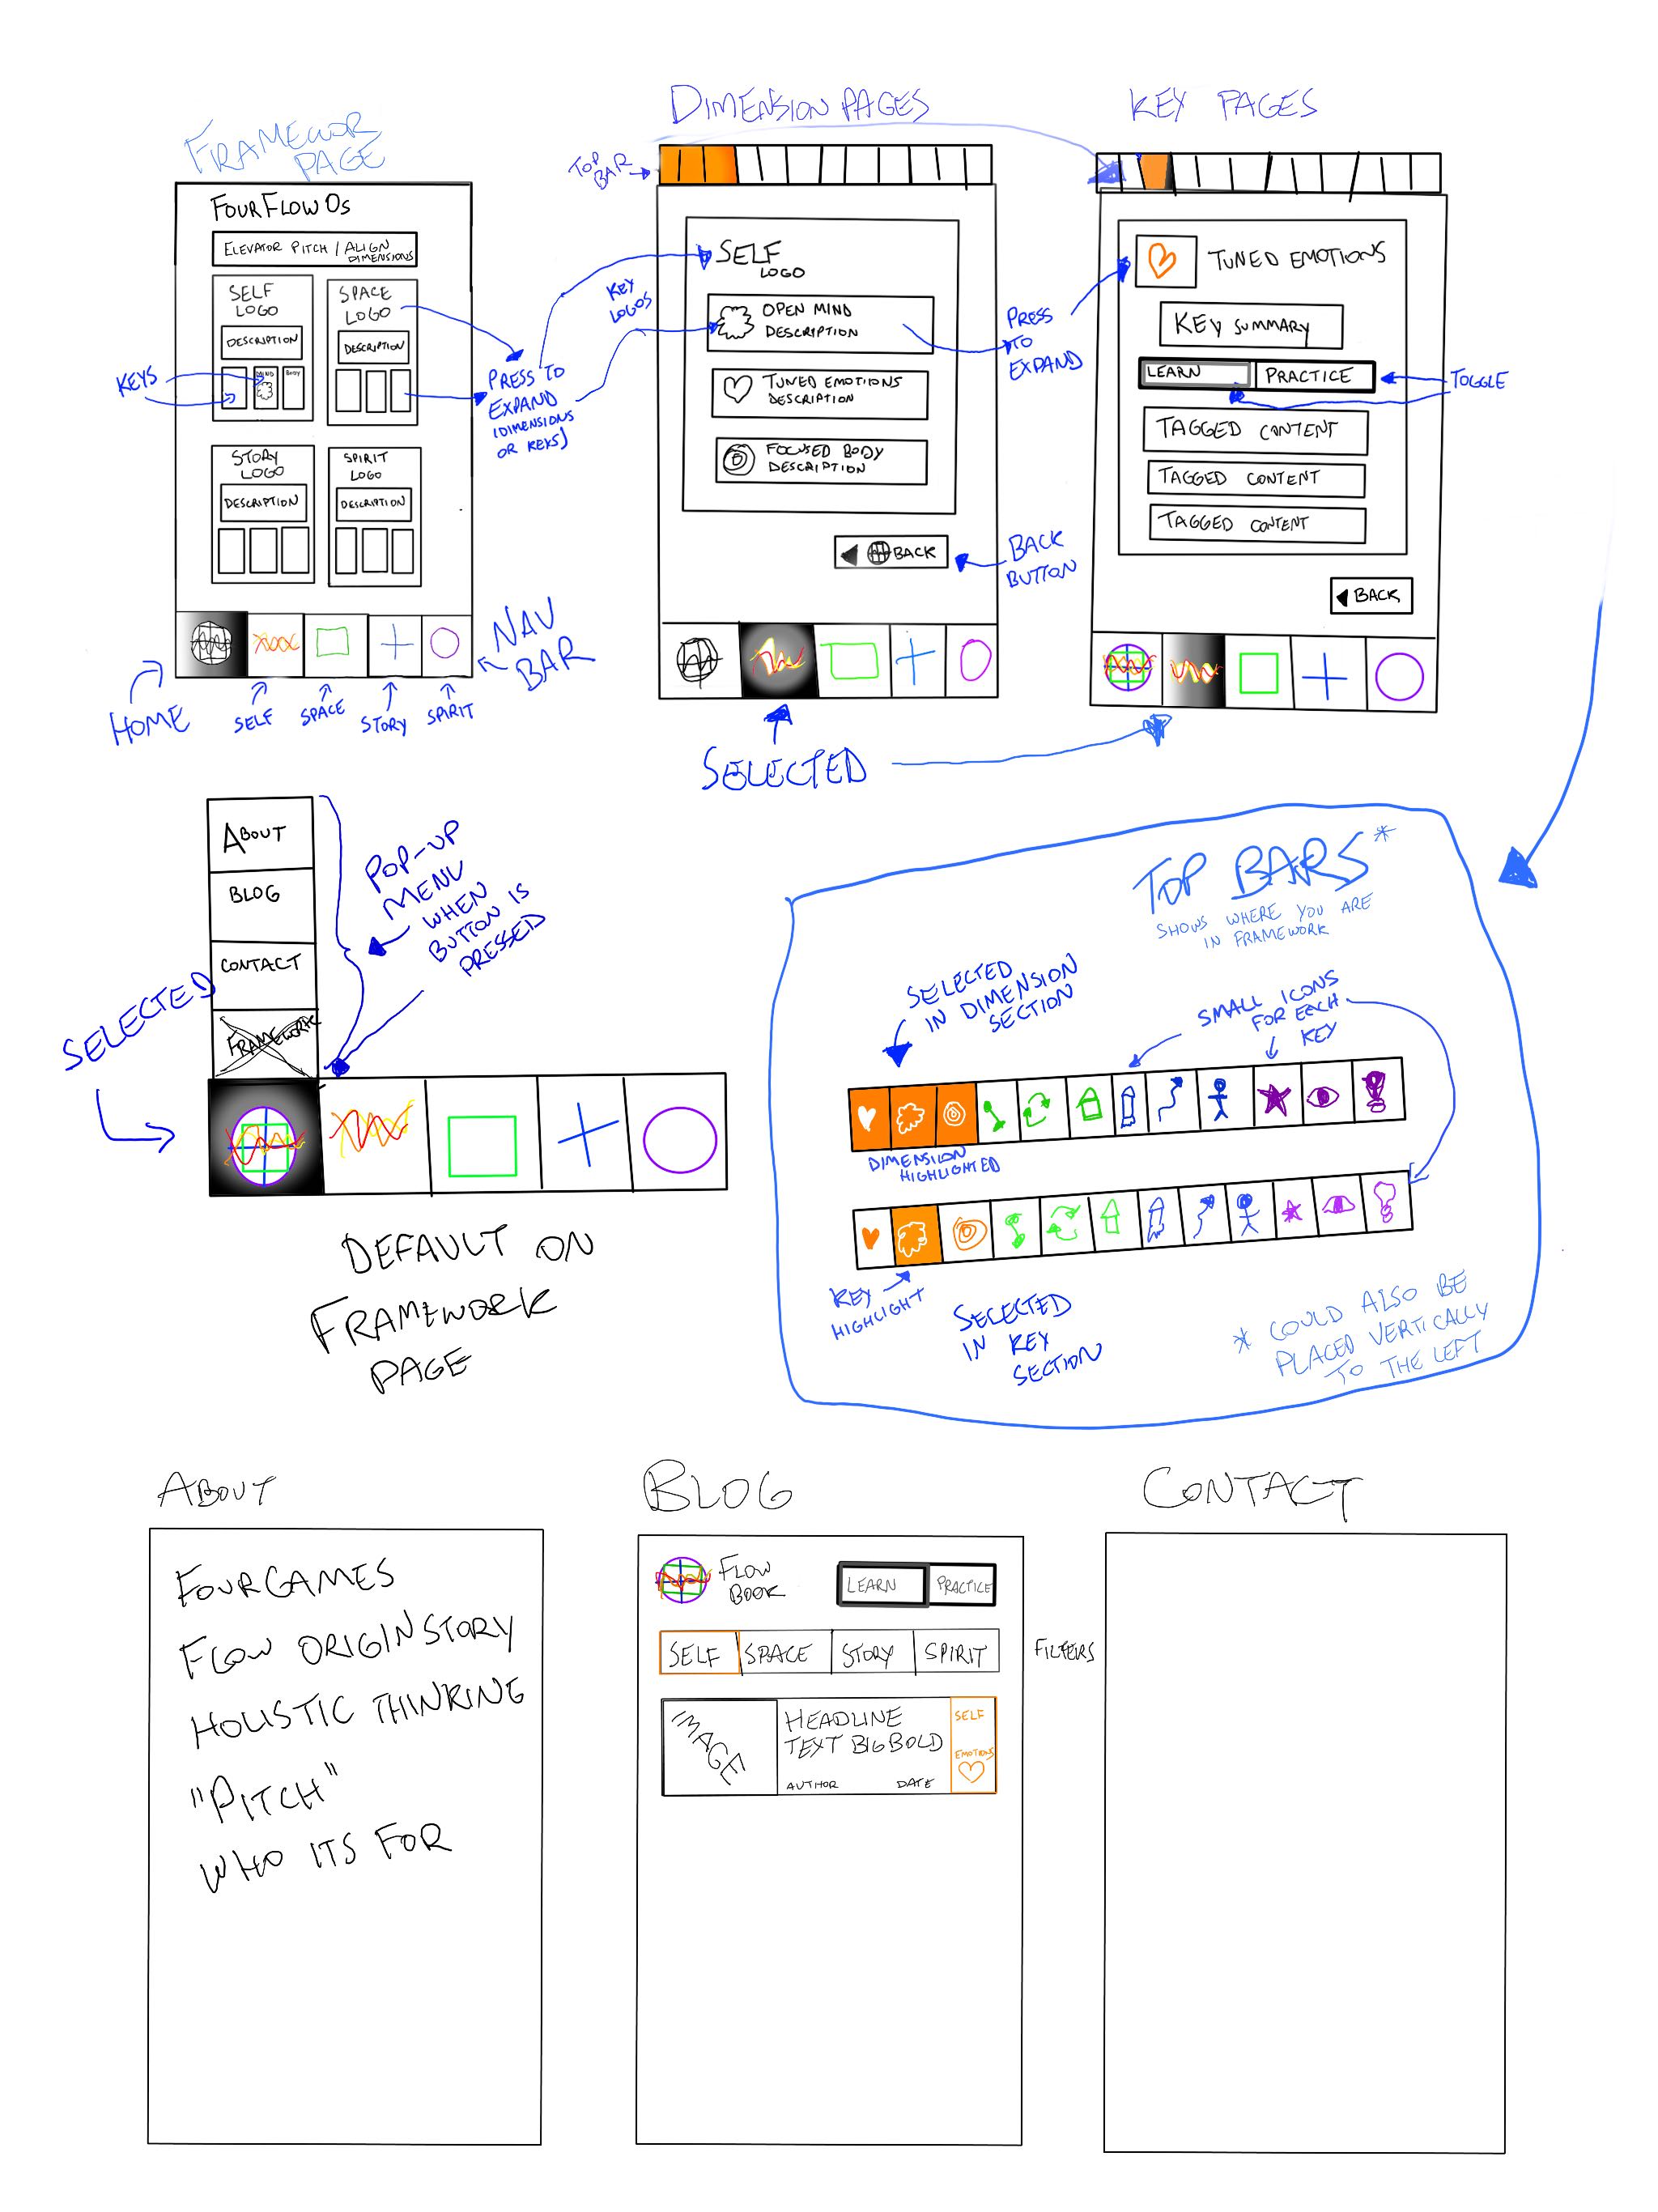 FRAMEWOR
PAGE
FOURFLOW OS
ELEVATOR PITCH / ALIGN
DIMENSIONS
SELF
LOGO
DESCRIPTION
MIND
BODY
SPACE
LOGO
DESCRIPTION
STORY
LOGO
DESCRIPTION
SPIRIT
LOGO
DESCRIPTION
KEYS
HOME
SELF
SPACE
STORY
SPIRIT
NAV
BAR
PRESS TO
EXPAND
(DIMENSIONS
OR KEYS)
DIMENSION PAGES
TOP
BAR
SELF
LOGO
KEY
LOGOS
OPEN MIND
DESCRIPTION
TUNED EMOTIONS
DESCRIPTION
FOCUSED BODY
DESCRIPTION
BACK
BACK
BUTTON
SELECTED
PRESS
TO
EXPAND
KEY PAGES
TUNED EMOTIONS
KEY SUMMARY
LEARN
PRACTICE
TOGGLE
TAGGED CONTENT
TAGGED CONTENT
TAGGED CONTENT
BACK
ABOUT
BLOG
CONTACT
FRAMEWORK
POP-UP
MENU
WHEN
BUTTON IS
PRESSED
SELECTED
DEFAULT ON
FRAMEWORK
PAGE
TOP BARS*
SHOWS WHERE YOU ARE
IN FRAMEWORK
SELECTED
IN DIMENSION
SECTION
SMALL ICONS
FOR EACH
KEY
DIMENSION
HIGHLIGHTED
KEY
HIGHLIGHT
SELECTED
IN KEY
SECTION
* COULD ALSO BE
PLACED VERTICALLY
TO THE LEFT
ABOUT
FOURGAMES
FLOW ORIGIN STORY
HOLISTIC THINKING
"PITCH"
WHO ITS FOR
BLOG
FLOW
BOOK
LEARN
PRACTICE
SELF
SPACE
STORY
SPIRIT
FILTERS
IMAGE
HEADLINE
TEXT BIG BOLD
AUTHOR
DATE
SELF
EMOTIONS
CONTACT